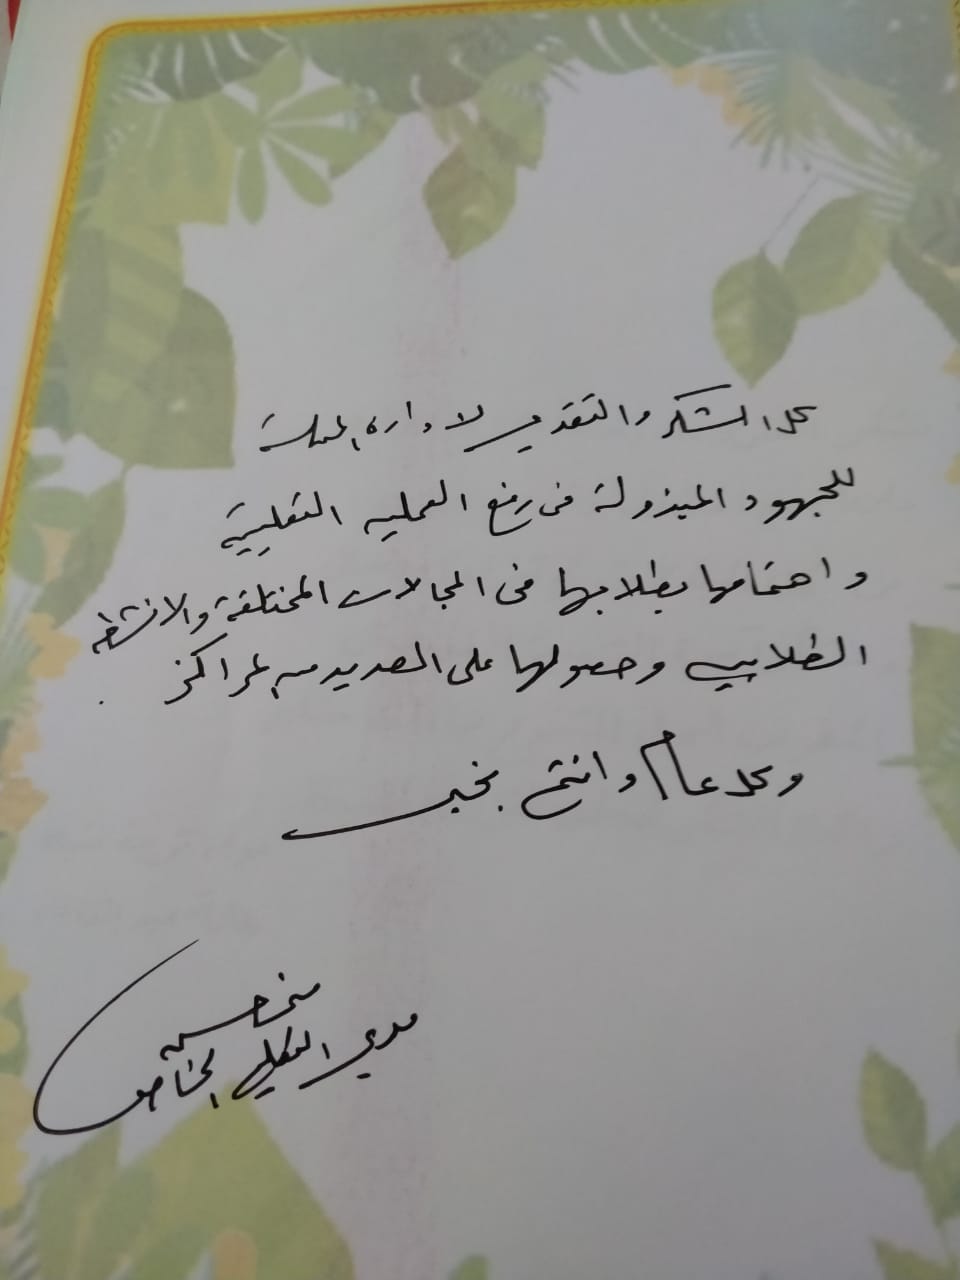 كل الشكر والتقدير لادارة المدرسة
للجهود المبذولة فى رفع العمليه التعليمية
واهتمامها بطلابها فى المجالات المختلفة والانشطه
الطلابيه وحصولها على العديد من المراكز .
وكل عام وانتم بخير
مدير التعليم الخاص